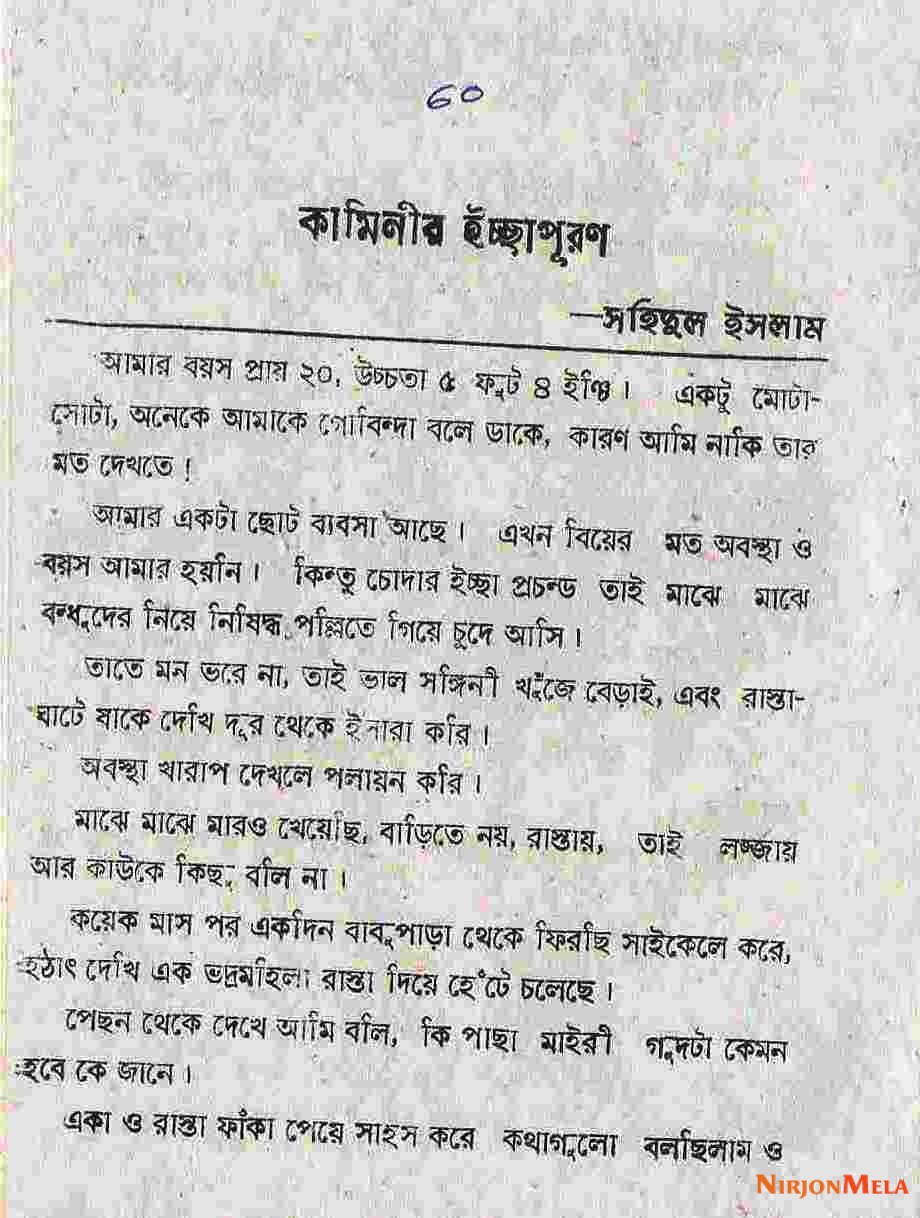 60
কামিনীর ইচ্ছাপূরণ
—সহিদুল ইসলাম
আমার বয়স প্রায় ২০, উচ্চতা ৫ ফুট ৪ ইঞ্চি। একটু মোটা-
সোটা, অনেকে আমাকে গোবিন্দা বলে ডাকে, কারণ আমি নাকি তার
মত দেখতে!
আমার একটা ছোট ব্যবসা আছে। এখন বিয়ের মত অবস্থা ও
বয়স আমার হয়নি। কিন্তু চোদার ইচ্ছা প্রচন্ড তাই মাঝে মাঝে
বন্ধুদের নিয়ে নিষিদ্ধ পল্লিতে গিয়ে চুদে আসি।
তাতে মন ভরে না, তাই ভাল সঙ্গিনী খুঁজে বেড়াই, এবং রাস্তা-
ঘাটে যাকে দেখি দূর থেকে ইশারা করি।
অবস্থা খারাপ দেখলে পলায়ন করি।
মাঝে মাঝে মারও খেয়েছি, বাড়িতে নয়, রাস্তায়, তাই লজ্জায়
আর কাউকে কিছু বলি না।
কয়েক মাস পর একদিন বাবুপাড়া থেকে ফিরছি সাইকেলে করে,
হঠাৎ দেখি এক ভদ্রমহিলা রাস্তা দিয়ে হেঁটে চলেছে।
পেছন থেকে দেখে আমি বলি, কি পাছা মাইরী গুদটা কেমন
হবে কে জানে।
একা ও রাস্তা ফাঁকা পেয়ে সাহস করে কথাগুলো বলছিলাম ও
NIRJONMELA